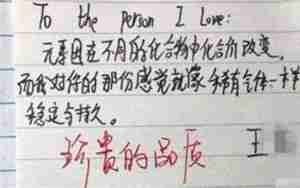 To the person I love:
元素因在不同的化合物中化合价改变,
而我对你的那份感觉就像稀有气体一样
稳定与持久。
珍贵的品质 王